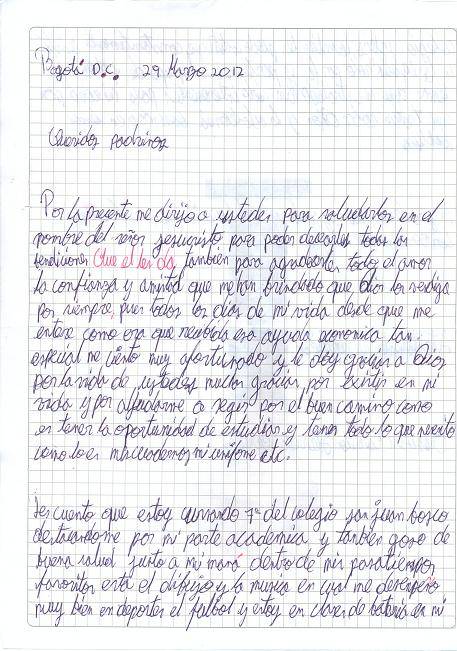 Bogotá D.C. 29 Marzo 2012
Queridos padrinos
Por la presente me dirijo a ustedes para saludarlos en el
nombre del señor jesucristo para poder desearles todas las
bendiciones Que el les da, también para agradecerles todo el amor
la confianza y amistad que me han brindado que dios los vendiga
por siempre, pues todos los dias de mi vida desde que me
entere como era que recibia esa ayuda economica tan
especial me ciento muy afortunado y le doy gracias a Dios
por la vida de ustedes muchas gracias por existir en mi
vida y por alludarme a seguir por el buen camino como
es tener la oportunidad de estudiar y tener todo lo que necesito
como lo es mis cuadernos mi uniforme etc.
Les cuento que estoy cursando 7º del colegio san juan bosco
destacandome por mi parte academica y tanbien gozo de
buena salud junto a mi mamá dentro de mis pasatiempos
favoritos esta el dibujo y la musica en cual me desempeño
muy bien en deportes el futbol y estoy en clases de bateria en mi